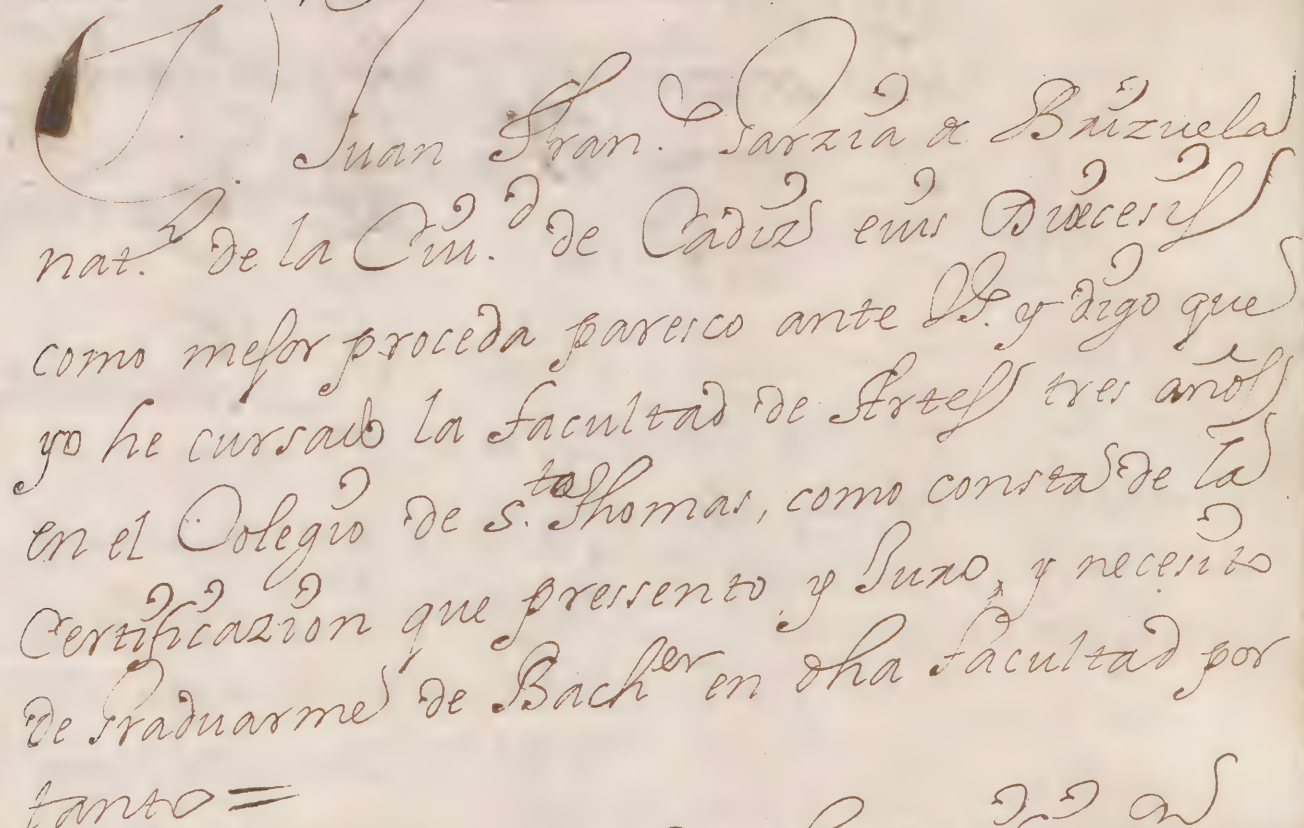 Juan Fran.co Garzia de Brizuela
nat.l de la Ciu.d de Cadiz eius Diœcesis
como mejor proceda paresco ante VS. y digo que
yo he cursado la facultad de Artes tres años
en el Colegio de S.to Thomas, como consta de la
Certificazion que pressento, y Juro, y necesito
de Graduarme de Bach.er en dha facultad por
tanto =